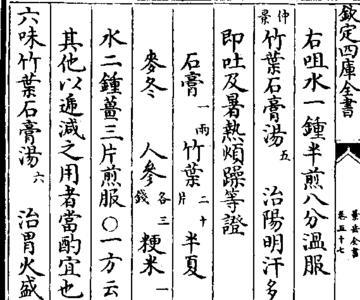 欽定四庫全書
景岳全書
卷五十七
右咀水一鍾半煎八分溫服
仲景竹葉石膏湯五 治陽明汗多
即吐及暑熱煩躁等證
石膏一兩 竹葉二十片 半夏
麥冬 人參各三錢 粳米一
水二鍾薑三片煎服○一方云
其他以遞減之用者當酌宜也
六味竹葉石膏湯六 治胃火盛